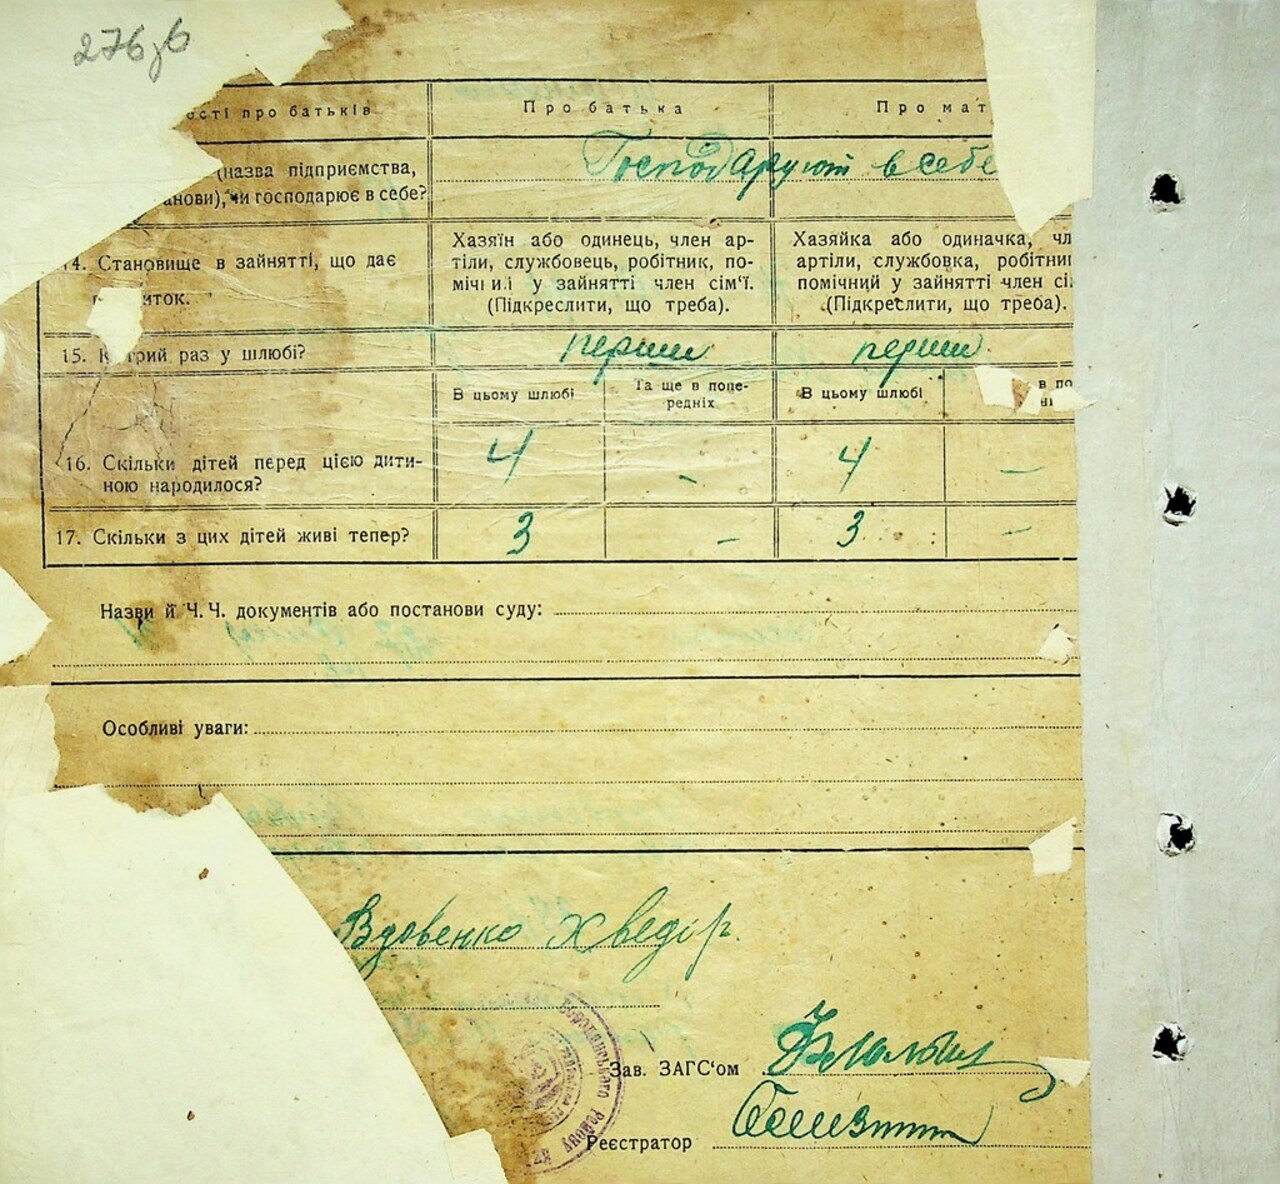 276зв
ості про батьків
Про батька
Про мат
(назва підприємства,
анови), чи господарює в себе?
Господарюют в себе
14. Становище в зайнятті, що дає
иток.
Хазяїн або одинець, член ар-
тілі, службовець, робітник, по-
мічний у зайнятті член сім'ї.
(Підкреслити, що треба).
Хазяйка або одиначка, чл
артілі, службовка, робітни
помічний у зайнятті член сі
(Підкреслити, що треба).
15. Котрий раз у шлюбі?
перший
перший
В цьому шлюбі
Та ще в попе-
редніх
В цьому шлюбі
в по
16. Скільки дітей перед цією дити-
ною народилося?
4
-
4
-
17. Скільки з цих дітей живі тепер?
3
-
3
-
Назви й Ч. Ч. документів або постанови суду:
Особливі уваги:
Вдовенко Хведір
Зав. ЗАГС'ом
Реєстратор
Бородянського Району